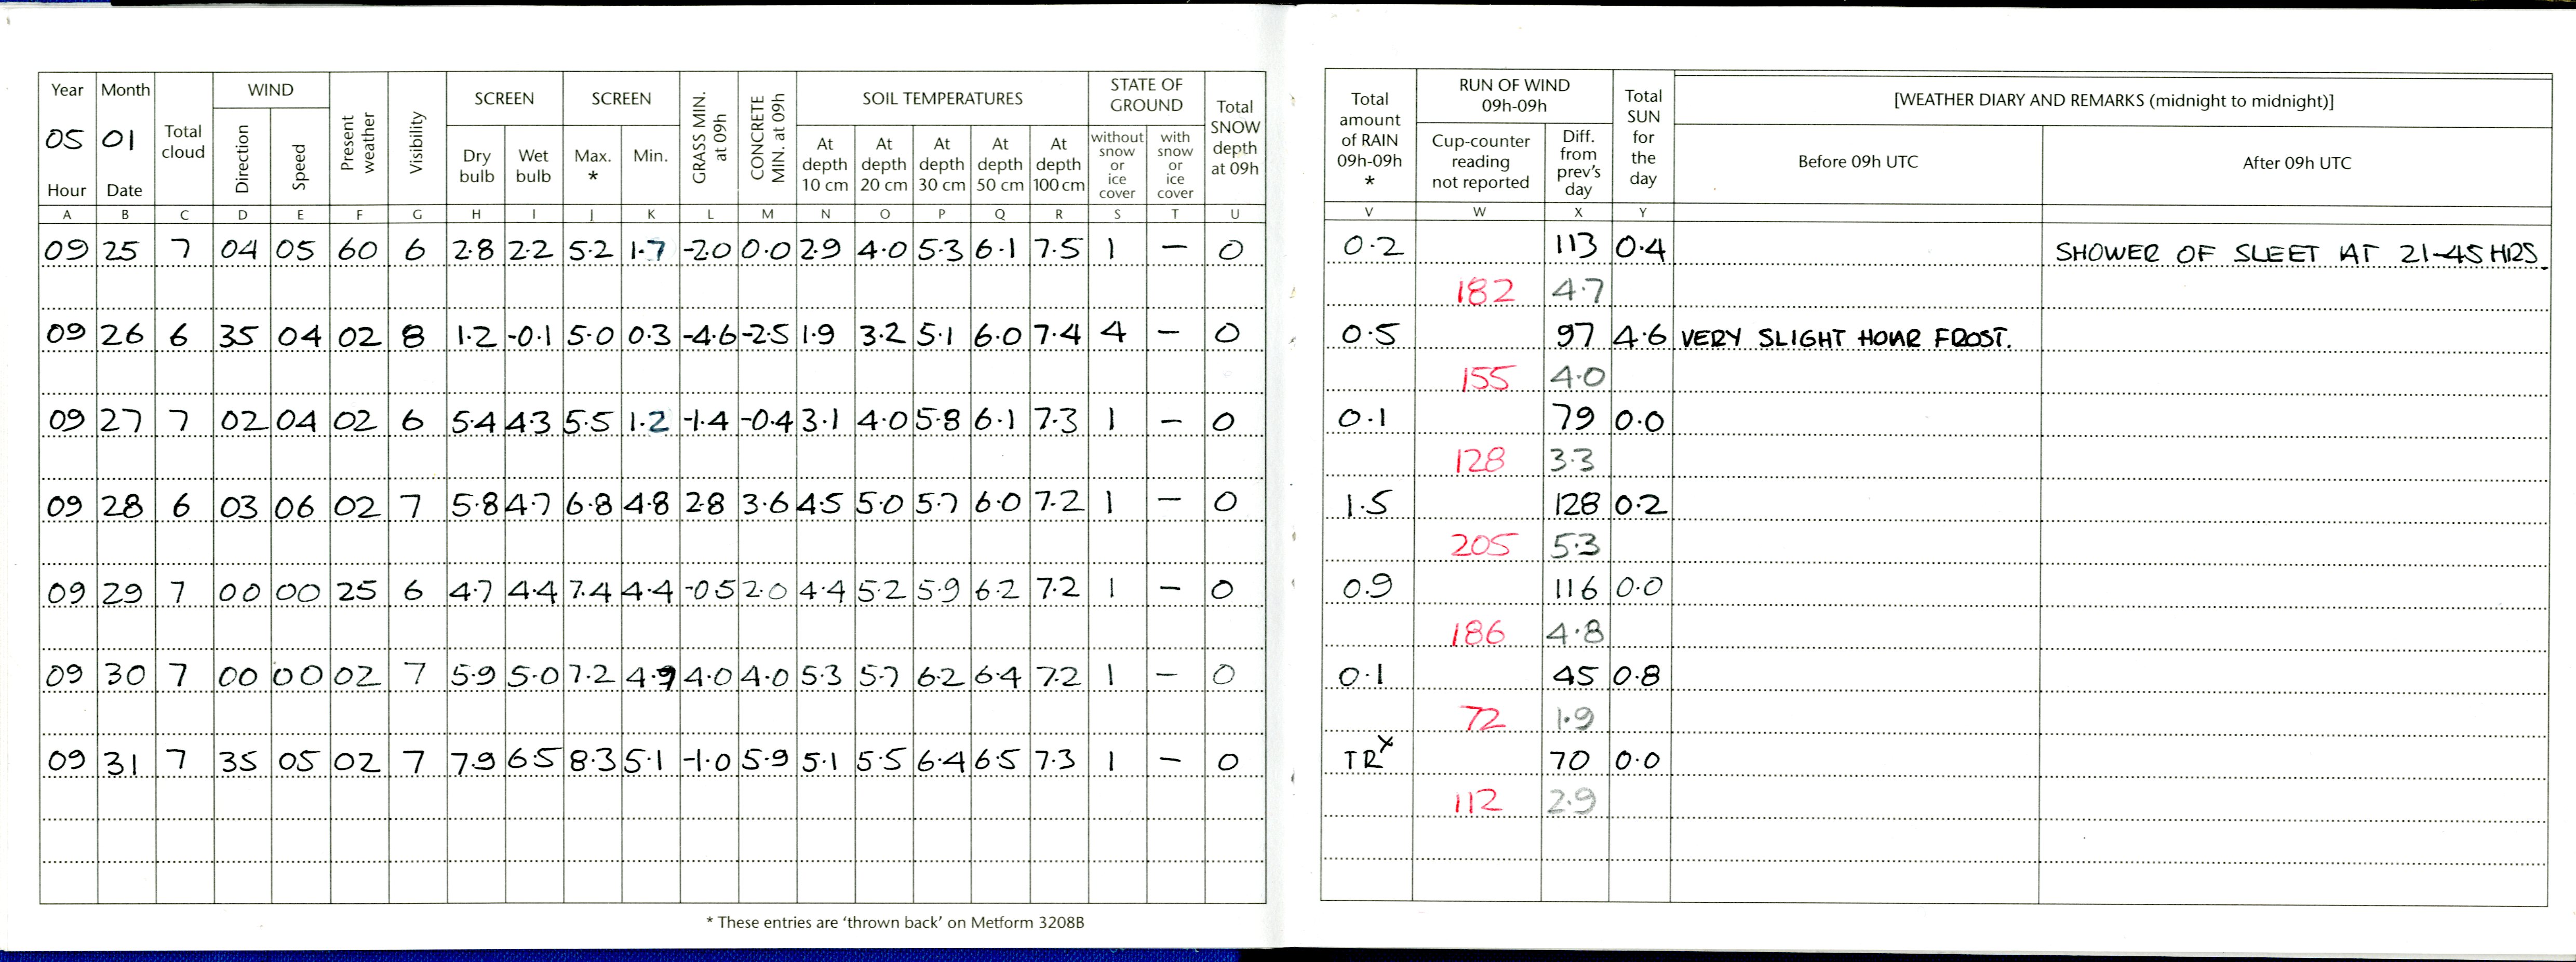 Year Month Total cloud WIND Present weather Visibility SCREEN SCREEN GRASS MIN. at 09h CONCRETE MIN. at 09h SOIL TEMPERATURES STATE OF GROUND Total SNOW depth at 09h
05 01 Direction Speed Dry bulb Wet bulb Max. * Min. At depth 10 cm At depth 20 cm At depth 30 cm At depth 50 cm At depth 100 cm without snow or ice cover with snow or ice cover
Hour Date
A B C D E F G H I J K L M N O P Q R S T U
09 25 7 04 05 60 6 2.8 2.2 5.2 1.7 -2.0 0.0 2.9 4.0 5.3 6.1 7.5 1 — 0
09 26 6 35 04 02 8 1.2 -0.1 5.0 0.3 -4.6 -2.5 1.9 3.2 5.1 6.0 7.4 4 — 0
09 27 7 02 04 02 6 5.4 4.3 5.5 1.2 -1.4 -0.4 3.1 4.0 5.8 6.1 7.3 1 — 0
09 28 6 03 06 02 7 5.8 4.7 6.8 4.8 2.8 3.6 4.5 5.0 5.7 6.0 7.2 1 — 0
09 29 7 00 00 25 6 4.7 4.4 7.4 4.4 -0.5 2.0 4.4 5.2 5.9 6.2 7.2 1 — 0
09 30 7 00 00 02 7 5.9 5.0 7.2 4.9 4.0 4.0 5.3 5.7 6.2 6.4 7.2 1 — 0
09 31 7 35 05 02 7 7.9 6.5 8.3 5.1 -1.0 5.9 5.1 5.5 6.4 6.5 7.3 1 — 0
* These entries are 'thrown back' on Metform 3208B
Total amount of RAIN 09h-09h * RUN OF WIND 09h-09h Total SUN for the day [WEATHER DIARY AND REMARKS (midnight to midnight)]
Cup-counter reading not reported Diff. from prev's day Before 09h UTC After 09h UTC
V W X Y
0.2 113 0.4 SHOWER OF SLEET AT 21-45 HRS.
182 4.7
0.5 97 4.6 VERY SLIGHT HOAR FROST.
155 4.0
0.1 79 0.0
128 3.3
1.5 128 0.2
205 5.3
0.9 116 0.0
186 4.8
0.1 45 0.8
72 1.9
TRˣ 70 0.0
112 2.9